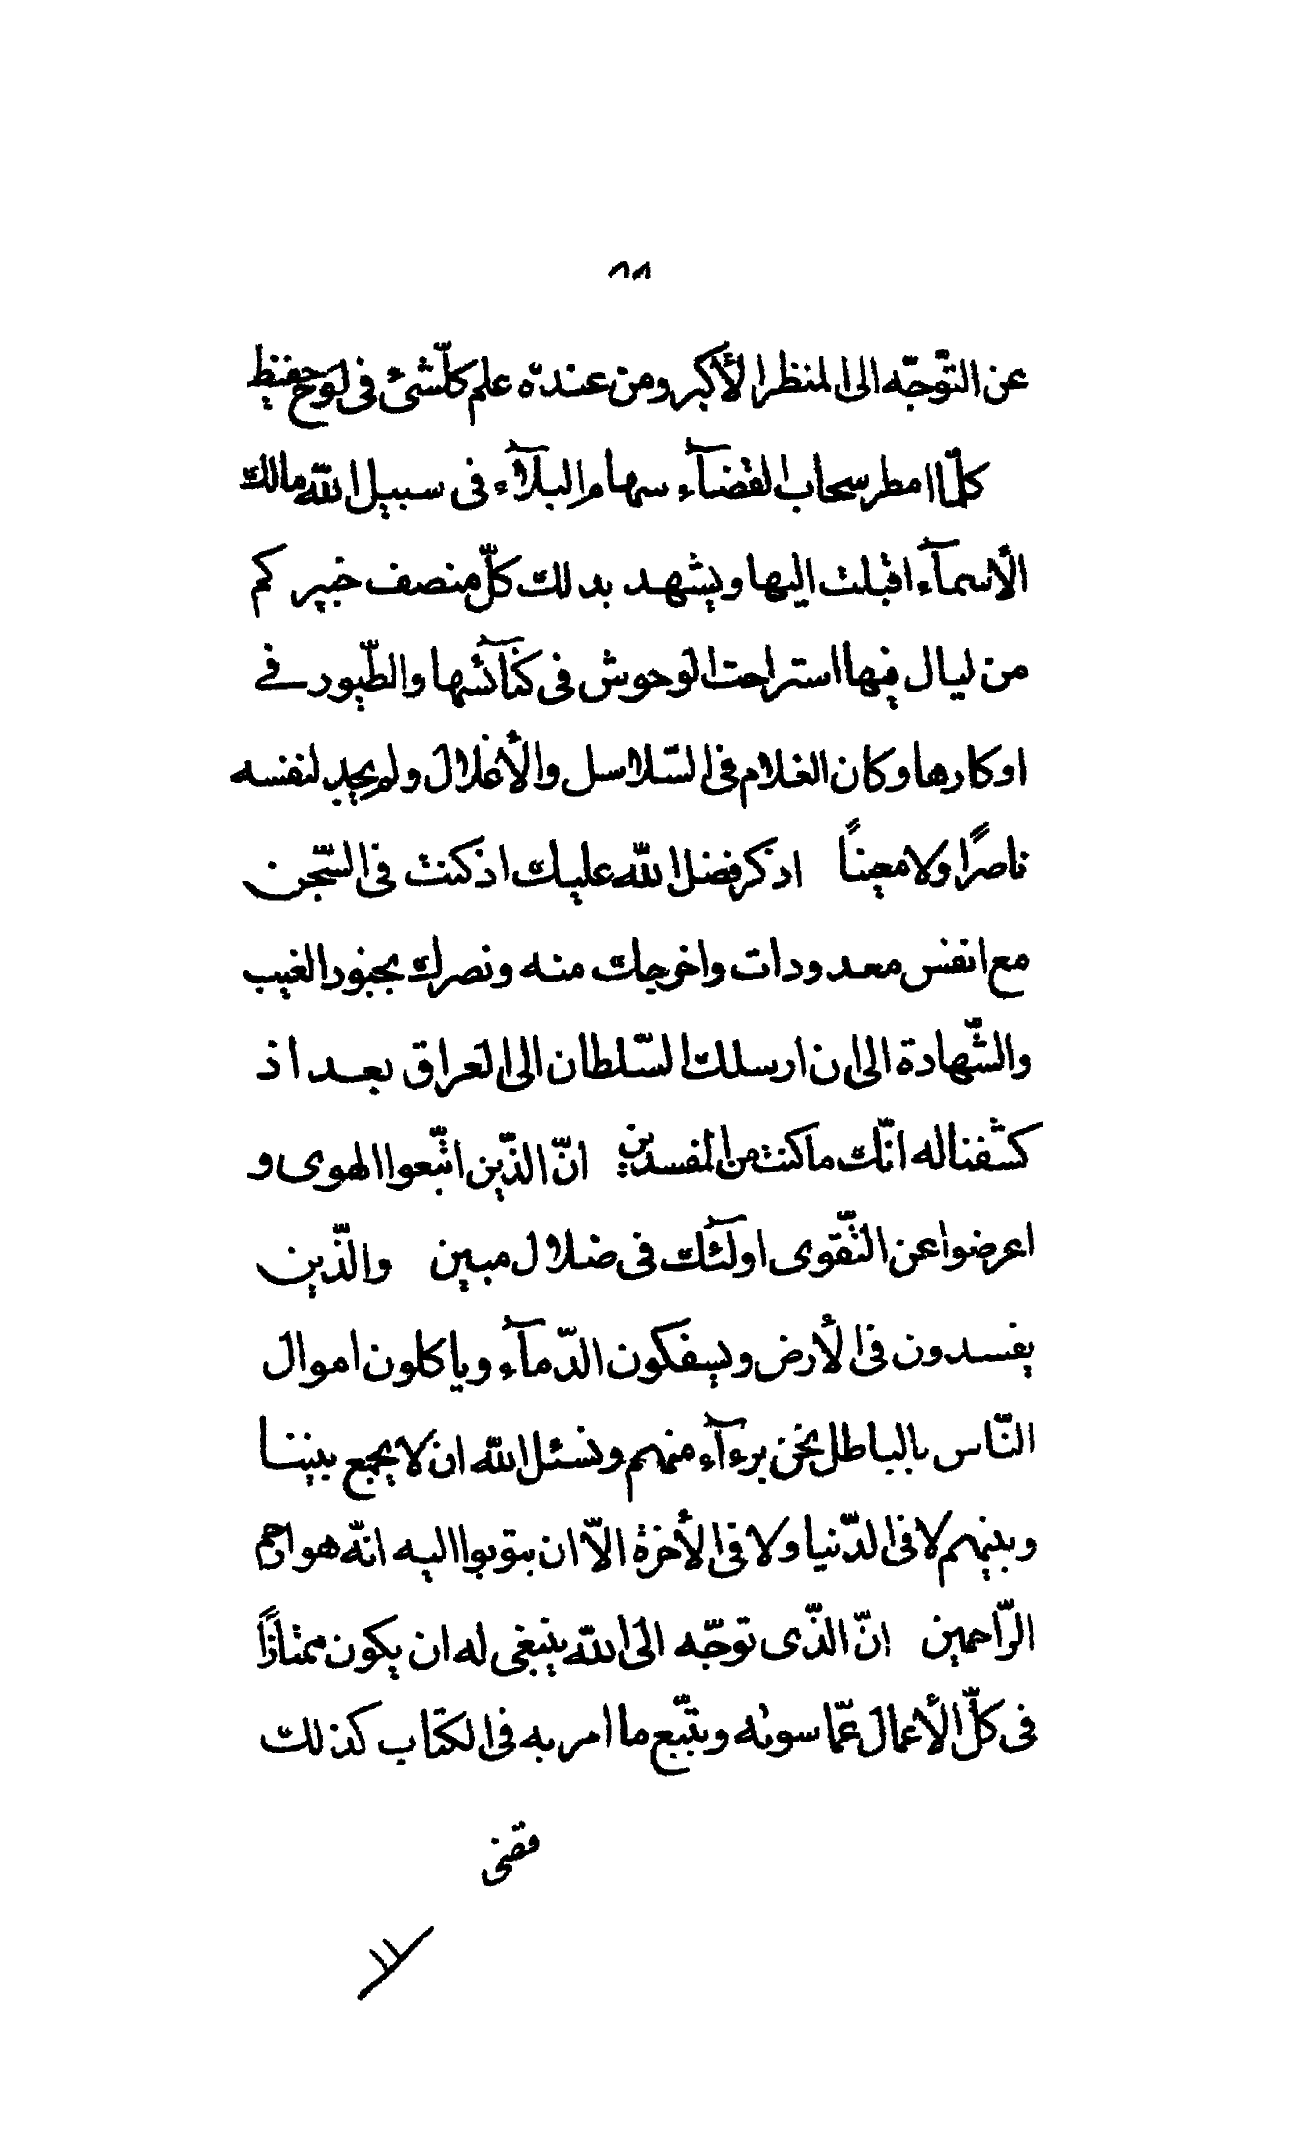 ٨٨
عن التّوجّه الى المنظر الأكبر ومن عنده علم كلّشئ فى لوح حفيظ
كلّا امطر سحاب القضآء سهام البلآء فى سبيل اللّه مالك
الأسمآء اقبلت اليها ويشهد بذلك كلّ منصف خبير كم
من ليال فيها استراحت الوحوش فى كنآئسها والطّيور فى
اوكارها وكان الغلام فى السّلاسل والأغلال ولم يجد لنفسه
ناصرًا ولا معينًا اذكر فضل اللّه عليك اذ كنت فى السّجن
مع انفس معدودات واخرجك منه ونصرك بجنود الغيب
والشّهادة الى ان ارسلك السّلطان الى العراق بعد اذ
كشفنا له انّك ما كنت من المفسدين انّ الذّين اتّبعوا الهوى و
اعرضوا عن التّقوى اولٓئك فى ضلال مبين والذّين
يفسدون فى الأرض ويسفكون الدّمآء وياكلون اموال
النّاس بالباطل نحن برءآء منهم ونسئل اللّه ان لا يجمع بيننا
وبينهم لا فى الدّنيا ولا فى الأخرة الّا ان يتوبوا اليه انّه هو ارحم
الرّاحمين انّ الذّى توجّه الى اللّه ينبغى له ان يكون ممتازًا
فى كلّ الأعمال عمّا سوىٰه ويتّبع ما امر به فى الكتاب كذلك
قضى
١١